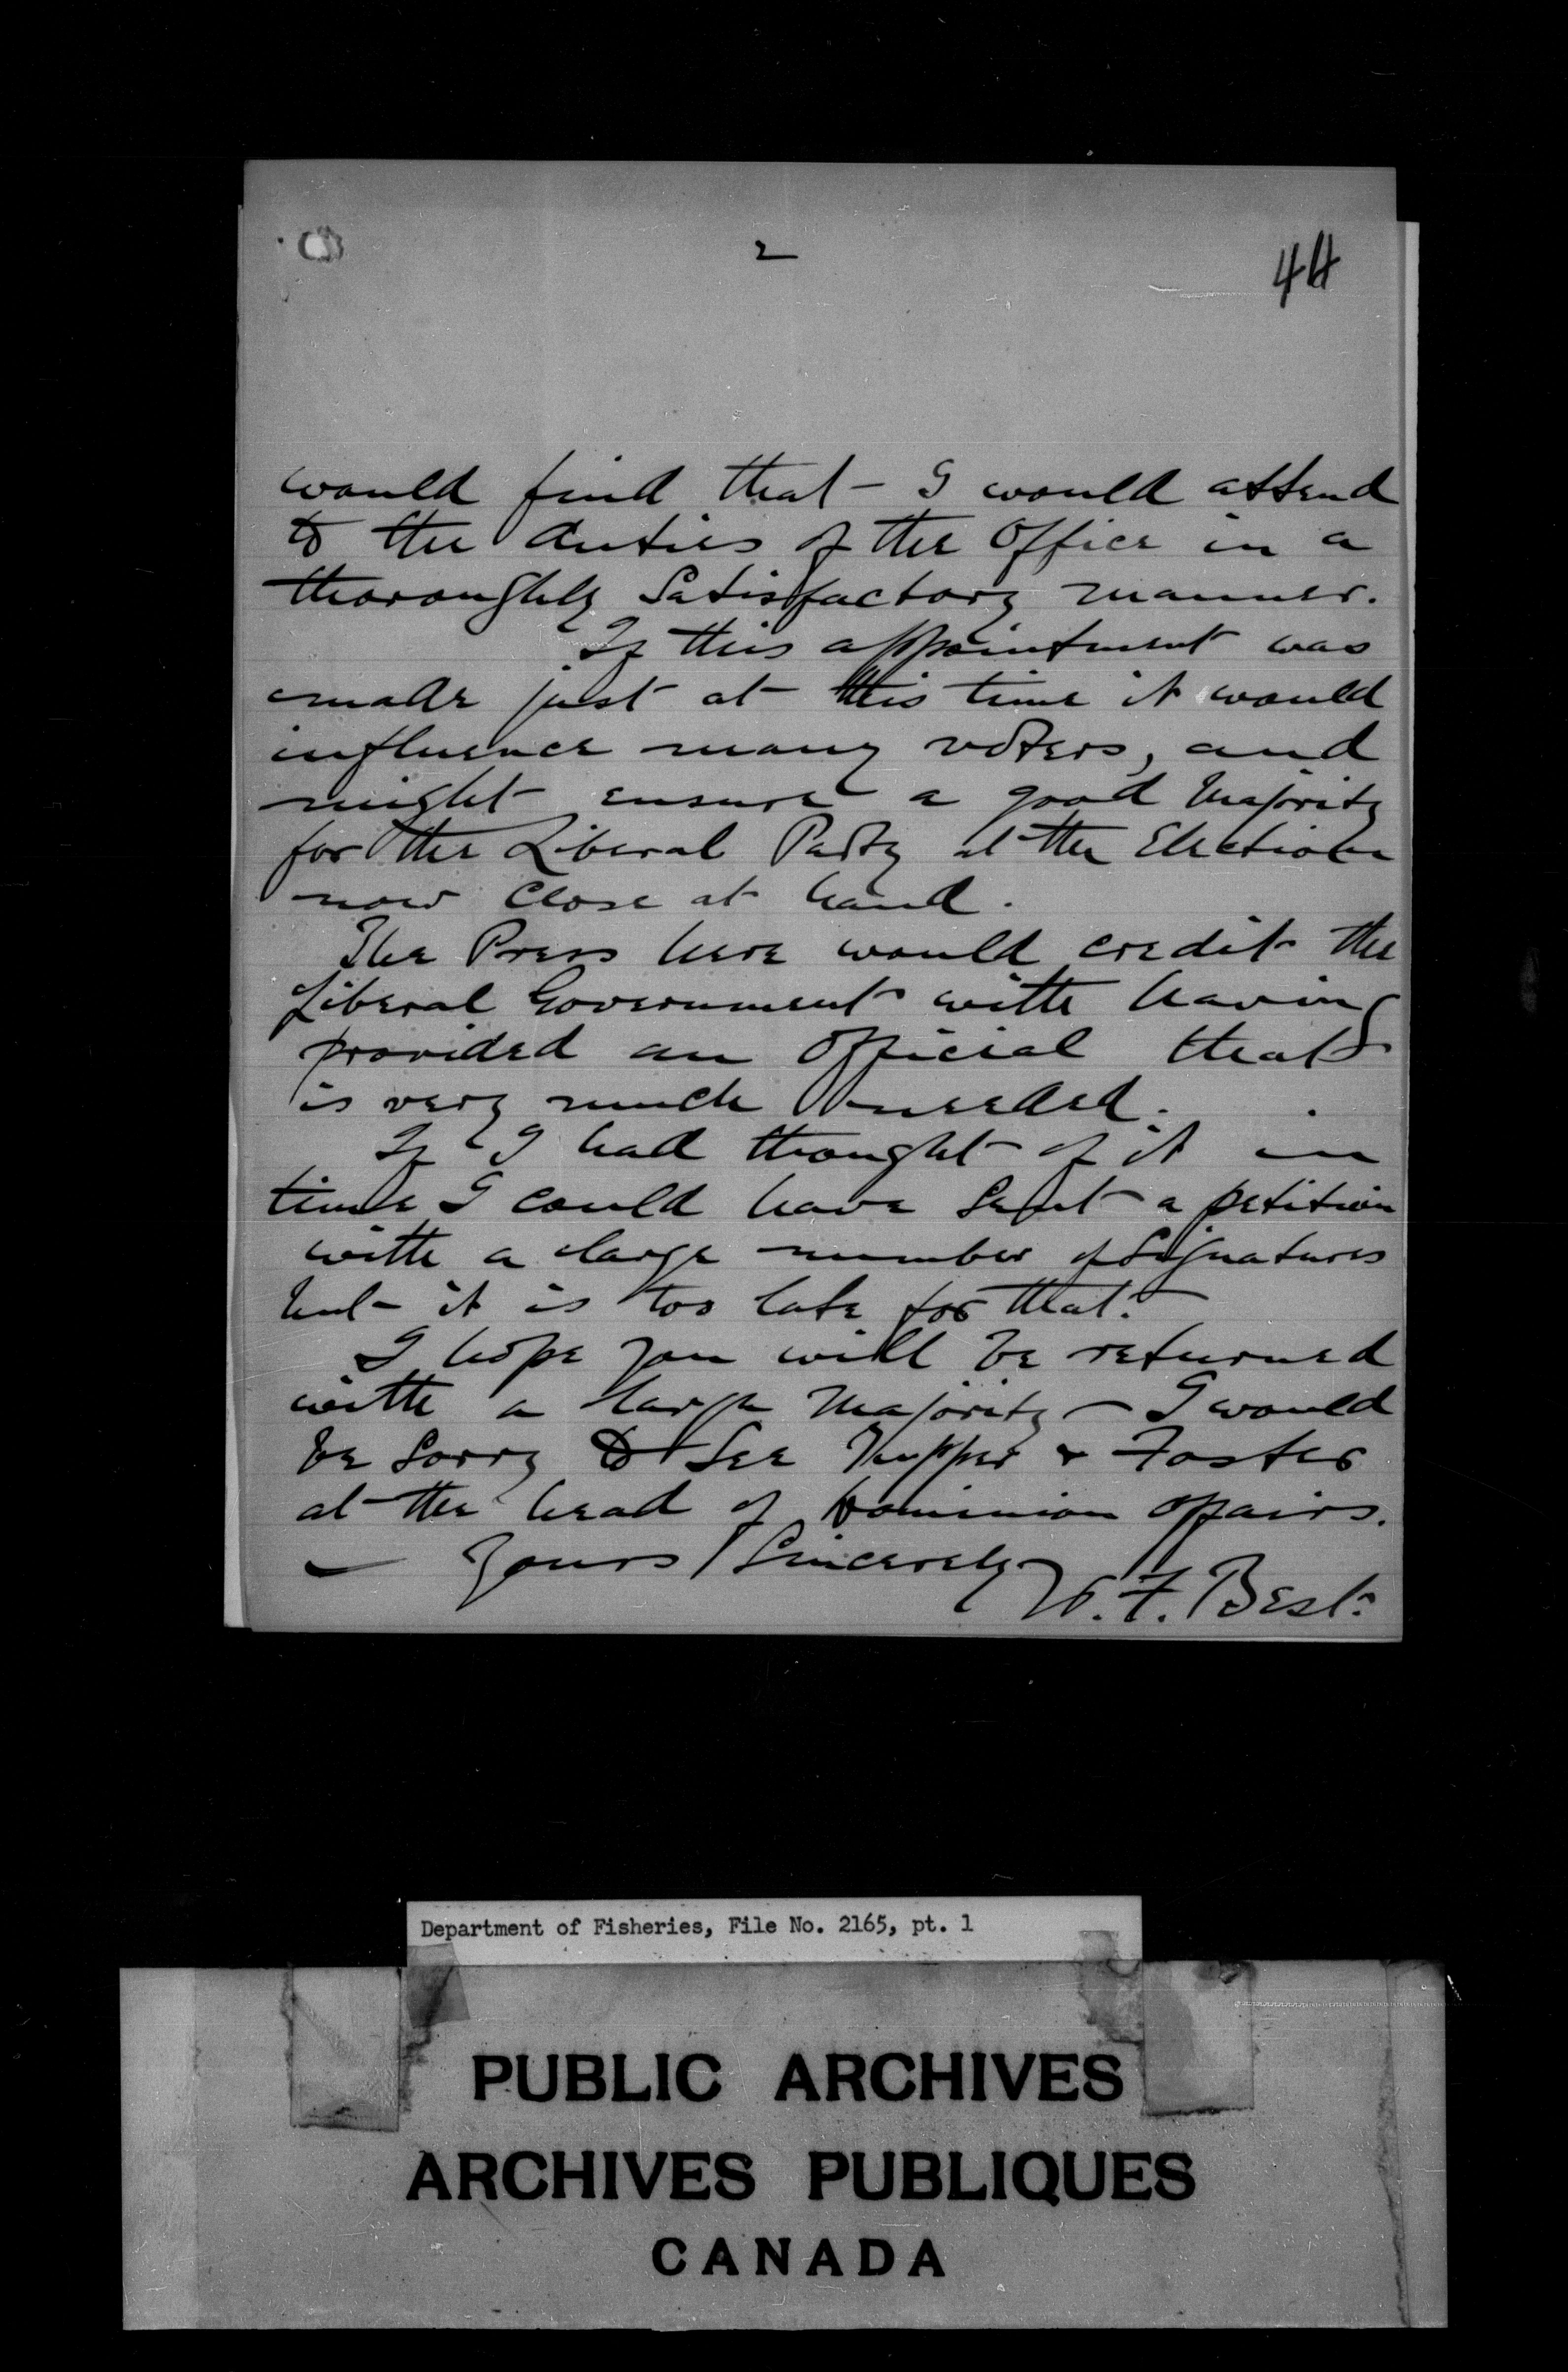 2
44
would find that - I would attend
to the duties of the Office in a
thoroughly Satisfactory manner.
If this appointment was
made just at this time it would
influence many voters, and
might ensure a good Majority
for the Liberal Party at the Election
now close at hand.
The Press here would credit the
Liberal Government with having
provided an Official that
is very much needed.
If I had thought of it in
time I could have sent a petition
with a large number of Signatures
but it is too late for that.
I hope you will be returned
with a large Majority - I would
be Sorry to See Tupper & Foster
at the head of Dominion affairs.
Yours Sincerely
W. F. Best.
Department of Fisheries, File No. 2165, pt. 1
PUBLIC ARCHIVES
ARCHIVES PUBLIQUES
CANADA